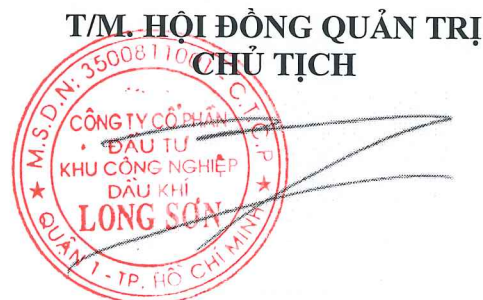 T/M. HỘI ĐỒNG QUẢN TRỊ
CHỦ TỊCH
M.S.D.N: 35008110 C.T.C.P
CÔNG TY CỔ PHẦN
ĐẦU TƯ
KHU CÔNG NGHIỆP
DẦU KHÍ
LONG SƠN
QUẬN 1 - TP. HỒ CHÍ MINH